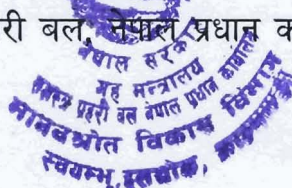 री बल, नेपाल प्रधान क
नेपाल सरकार
गृह मन्त्रालय
सशस्त्र प्रहरी बल नेपाल प्रधान कार्यालय
मानवश्रोत विकास विभाग
स्वयम्भू, हलचोक, काठमाडौं